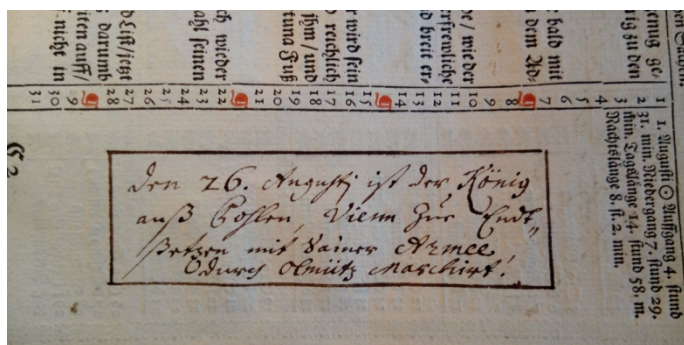 den 26. Augusti ist der König
auß Pohlen, Vienn zur Endt„
setzen mit Seiner Armee
durch Olmütz Marchirt!
1. Augusti ☉ Auffgang 4. stund
31. min. Nidergang 7. stund 29.
min. Tagslänge 14. stund 58. m.
Nachtslänge 8. st. 2. min.
1
2
3
4
5
6
7
8
9
10
11
12
13
14
15
16
17
18
19
20
21
22
23
24
25
26
27
28
29
30
31
genug ge-
bald mit
dem Ad-
be/ wieder
erfrewliche
nd breit er-
er wird sein
reichlich
ihm / und
tuna Fuß
ch wieder
ahl seinen
d List/ jetzt
darumb
iten auff/
nicht in